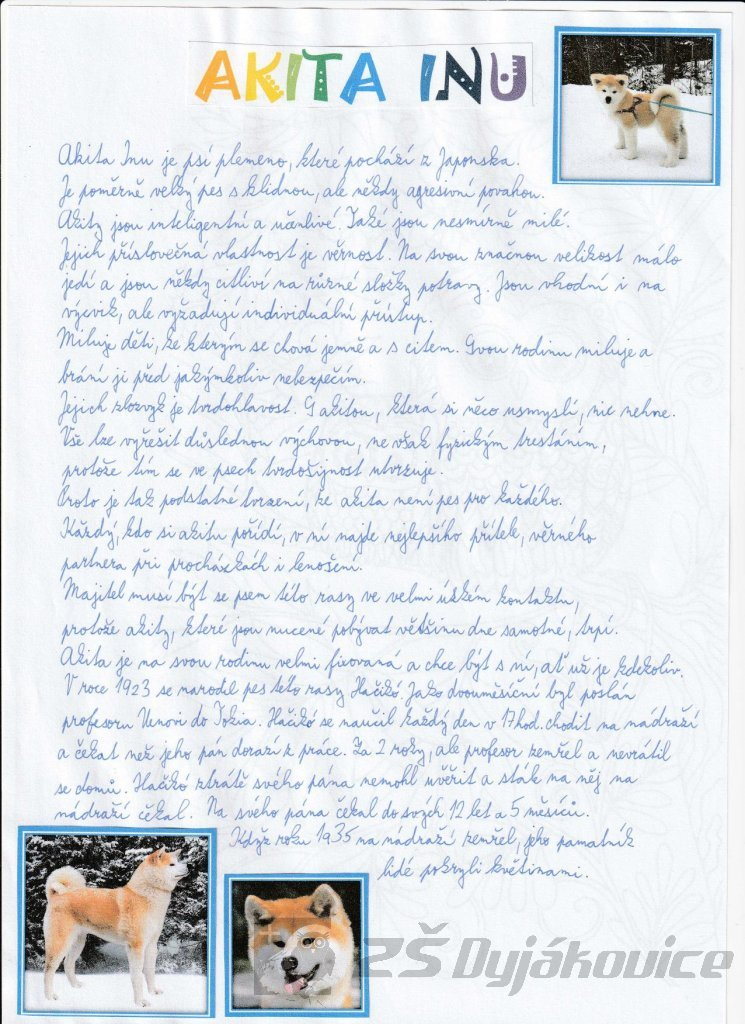 AKITA INU
Akita Inu je psí plemeno, které pochází z Japonska.
Je poměrně velký pes s klidnou, ale někdy agresivní povahou.
Akity jsou inteligentní a učenlivé. Také jsou nesmírně milé.
Jejich příslovečná vlastnost je věrnost. Na svou značnou velikost málo
jedí a jsou někdy citliví na různé složky potravy. Jsou vhodní i na
výcvik, ale vyžadují individuální přístup.
Miluje děti, ke kterým se chová jemně a s citem. Svou rodinu miluje a
brání ji před jakýmkoliv nebezpečím.
Jejich zlozvyk je tvrdohlavost. S akitou, která si něco usmyslí, nic nehne.
Vše lze vyřešit důslednou výchovou, ne však fyzickým trestáním,
protože tím se ve psech tvrdošijnost utvrzuje.
Proto je tak podstatné tvrzení, že akita není pes pro každého.
Každý, kdo si akitu pořídí, v ní najde nejlepšího přítele, věrného
partnera při procházkách i lenošení.
Majitel musí být se psem této rasy ve velmi úzkém kontaktu,
protože akity, které jsou nucené pobývat většinu dne samotné, trpí.
Akita je na svou rodinu velmi fixovaná a chce být s ní, ať už je kdekoliv.
V roce 1923 se narodil pes této rasy Hačikó. Jako dvouměsíční byl poslán
profesoru Uenovi do Tokia. Hačikó se naučil každý den v 17hod. chodit na nádraží
a čekat než jeho pán dorazí z práce. Za 2 roky, ale profesor zemřel a nevrátil
se domů. Hačikó ztrátě svého pána nemohl uvěřit a stále na něj na
nádraží čekal. Na svého pána čekal do svých 12 let a 5 měsíců.
Když roku 1935 na nádraží zemřel, jeho pamatník
lidé pokryli květinami.
ZŠ Dyjákovice